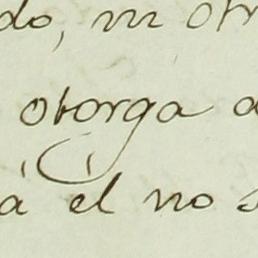 do, ni otr
otorga a
á el no s